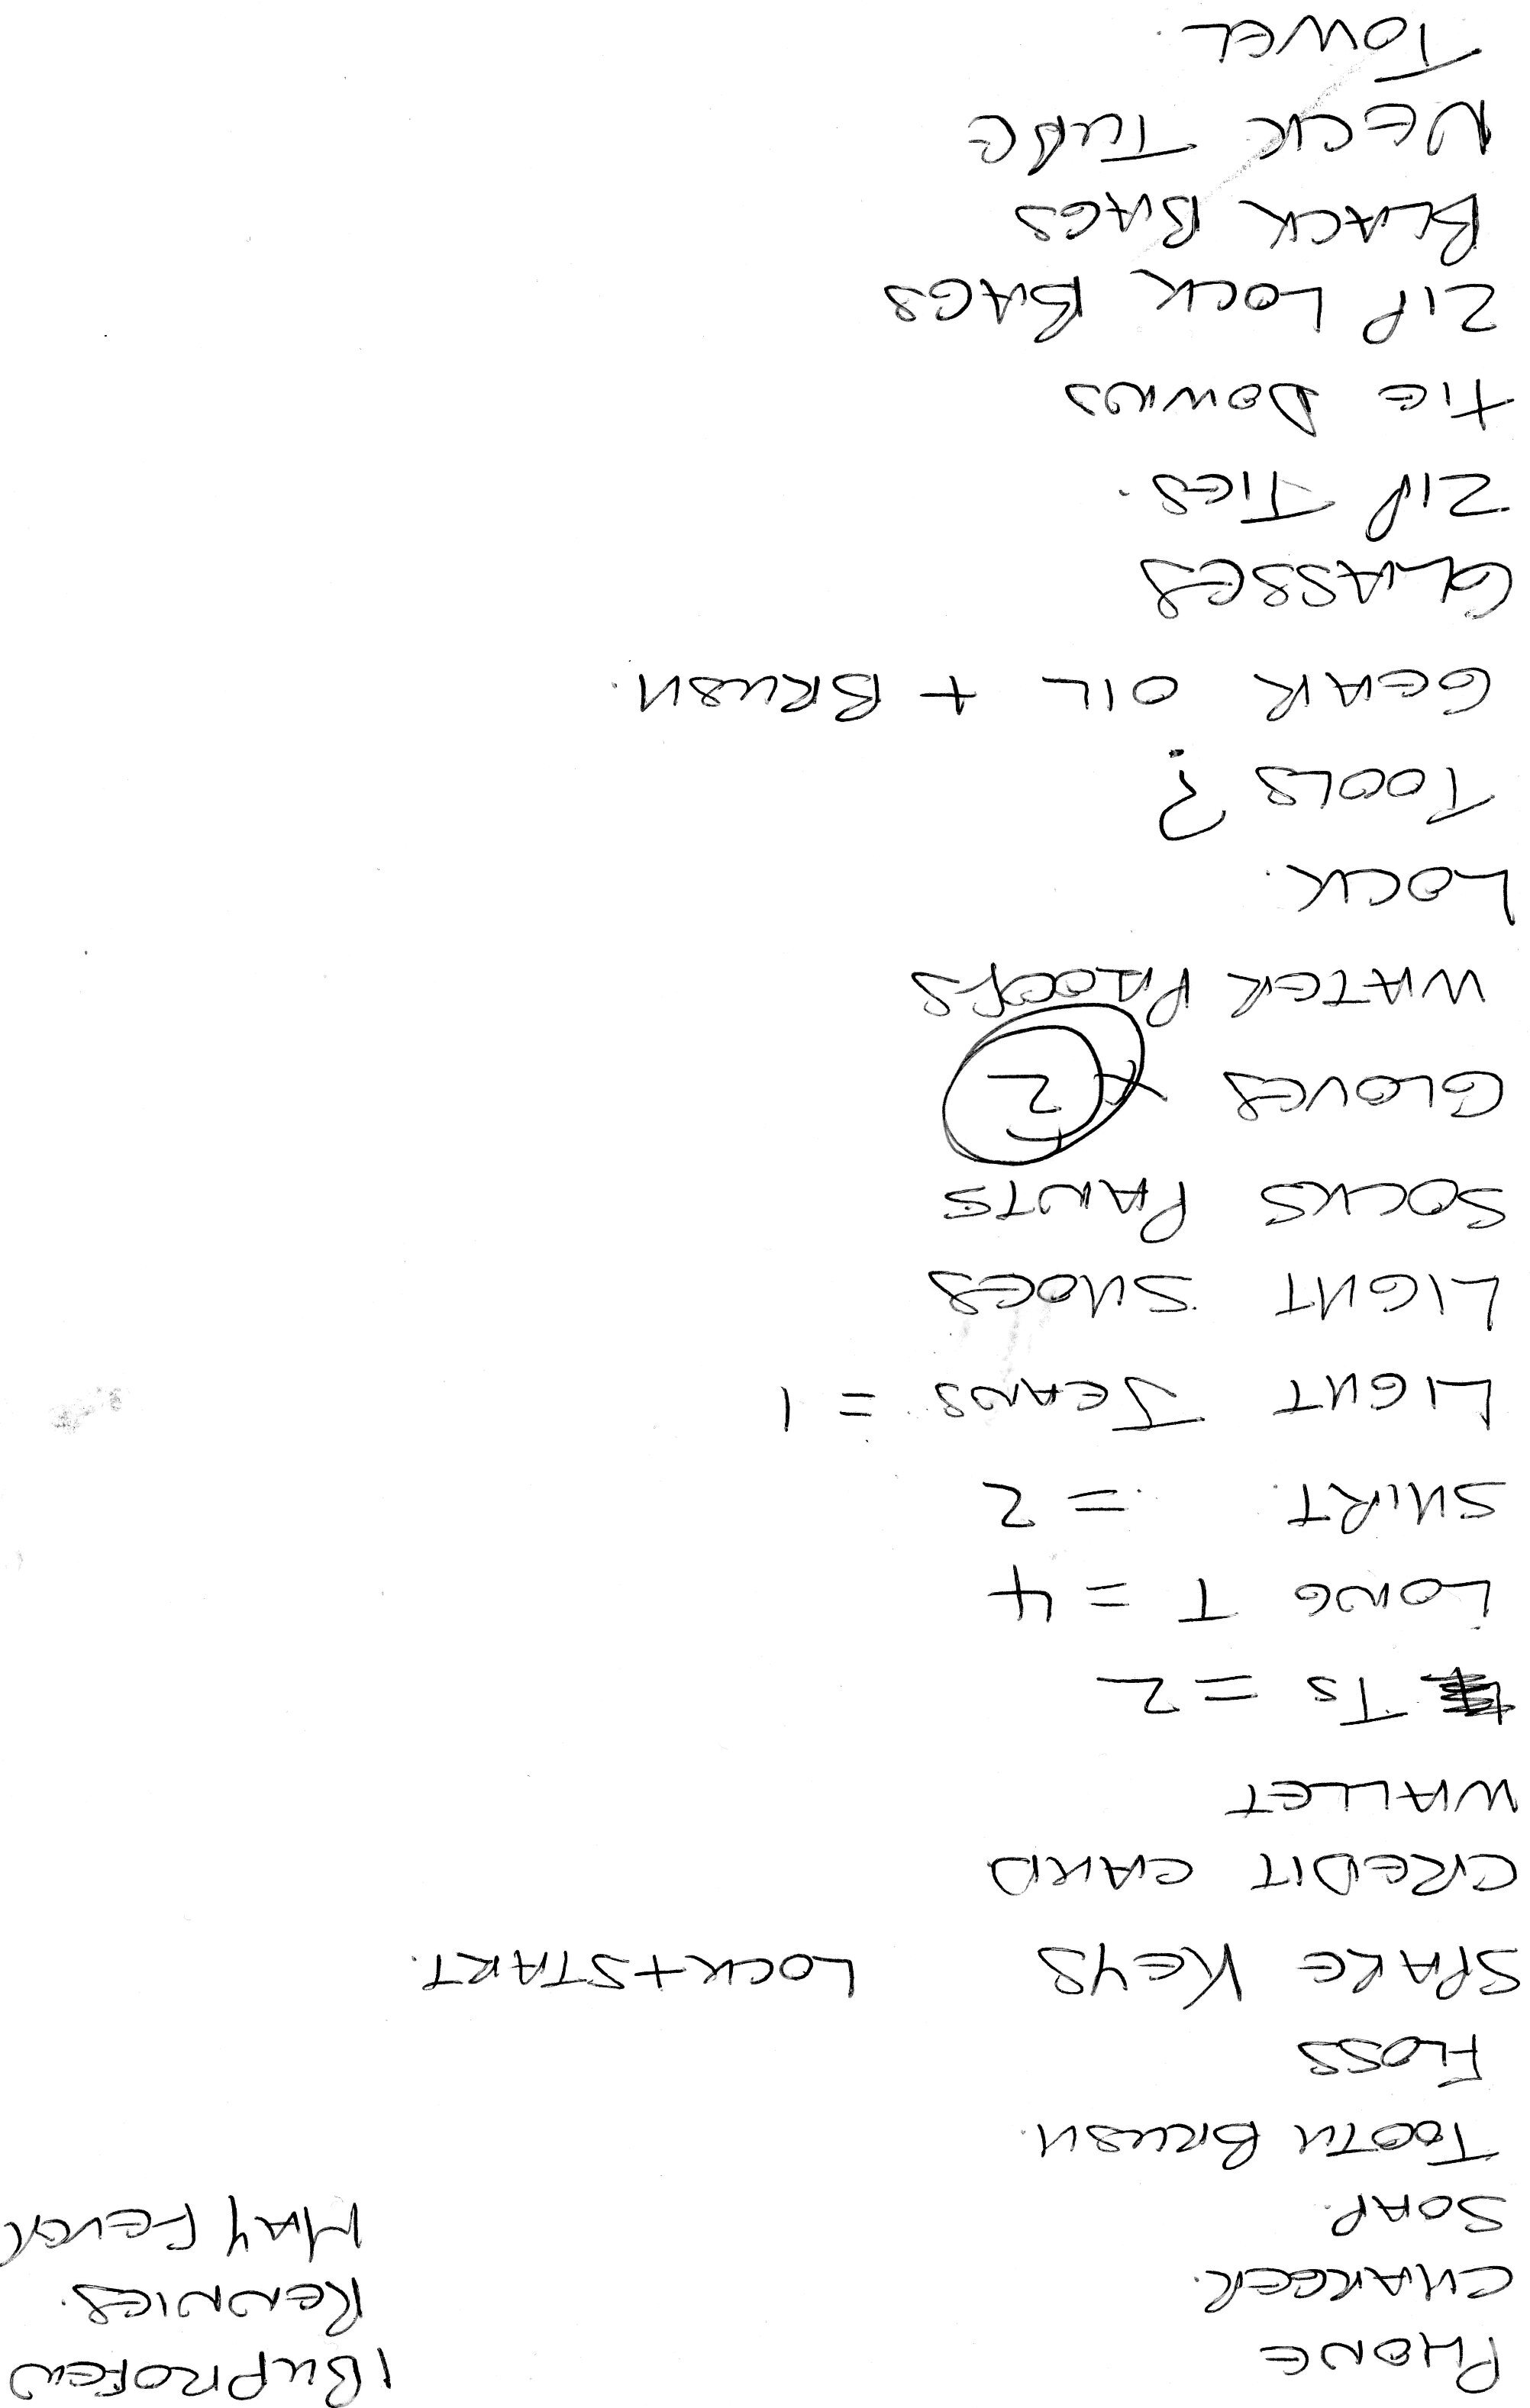 PHONE
IBUPROFEN
CHARGER.
RENNIES.
SOAP.
HAY FEVER
TOOTH BRUSH.
FLOSS
SPARE KEYS LOCK+START.
CREDIT CARD
WALLET
Ts = 2
LONG T = 4
SHIRT. = 2
LIGHT JEANS = 1
LIGHT SHOES
SOCKS PANTS
GLOVES x 2
WATER PROOFS
LOCK.
TOOLS ?
GEAR OIL + BRUSH.
GLASSES
ZIP TIES.
tIE DOWNS
ZIP LOCK BAGS
BLACK BAGS
NECK TUBE
TOWEL.